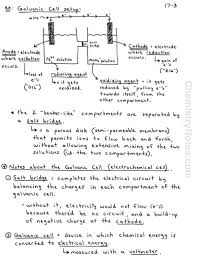 Ex: Galvanic Cell setup:
17-3
electrodes
wire
Anode = electrode
where oxidation
occurs.
Cathode = electrode
where reduction
occurs.
loss of
e⁻'s
("OIL")
reducing agent =
is it gets
oxidized
oxidizing agent = is it gets
reduced by "pulling e⁻'s"
towards itself, from
the other compartment.
gain of
e⁻'s
("RIG")
• the 2 "beaker-like" compartments are separated
by a salt bridge.
↳ is a porous disk (semi-permeable membrane)
that permits ions to flow back and forth
without allowing extensive mixing of the two
solutions (i.e. the two compartments).
Notes about the Galvanic Cell (electrochemical cell).
① Salt bridge = completes the electrical circuit by
balancing the charges in each compartment of the
galvanic cell.
- without it, electricity would not flow (e⁻'s)
because there'd be no circuit, and a build-up
of negative charge at the cathode.
② Galvanic cell = device in which chemical energy is
converted to electrical energy.
↳ measured with a voltmeter.
ChemistryNotes.com